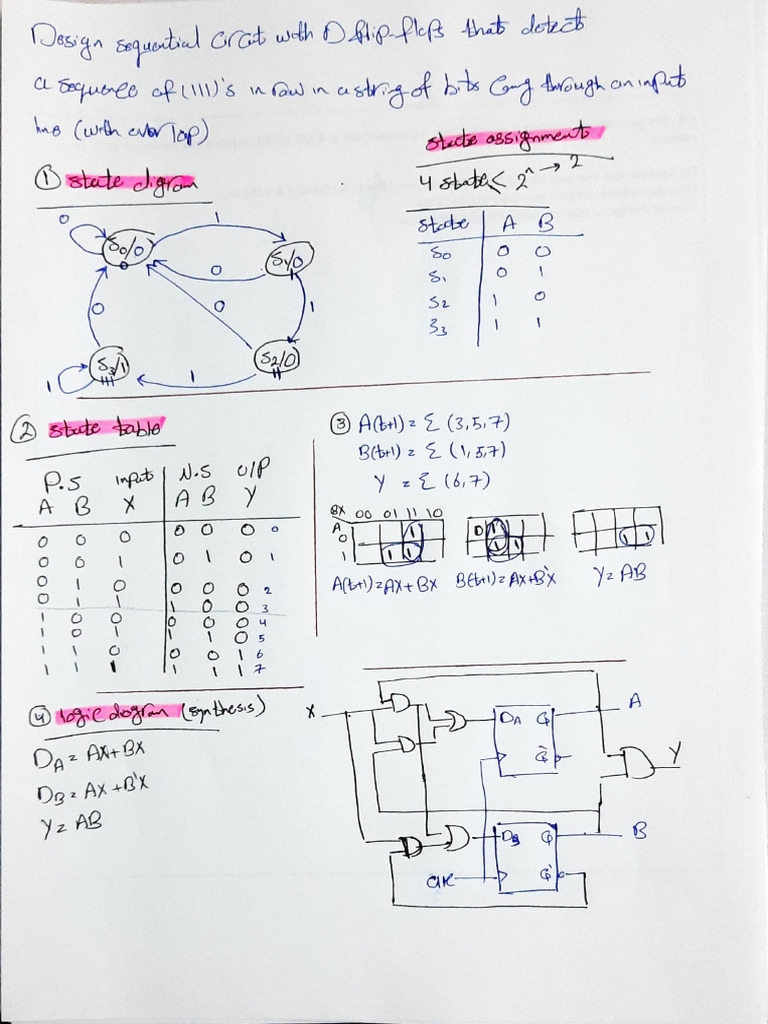 Design sequential circut with D flip-flops that detects
a sequence of (111)'s in raw in a string of bits Comg through an input
line (with over lap)
① state digram
0
1
S0/0
S1/0
0
0
0
1
S3/1
111
S2/0
11
1
1
state assignment
4 state ≤ 2^n → 2
state A B
S0 0 0
S1 0 1
S2 1 0
S3 1 1
② state table
P.S input N.S O/P
A B X A B Y
0 0 0 0 0 0 0
0 0 1 0 1 0 1
0 1 0 0 0 0 2
0 1 1 1 0 0 3
1 0 0 0 0 0 4
1 0 1 1 1 0 5
1 1 0 0 0 1 6
1 1 1 1 1 1 7
③ A(t+1) = Σ (3,5,7)
B(t+1) = Σ (1,5,7)
Y = Σ (6,7)
BX 00 01 11 10
A
0 1
1 1 1
0 1
1 1
1 1
A(t+1)=AX+BX B(t+1)=AX+B'X Y=AB
④ logic diogram (synthesis)
DA = AX+BX
DB = AX+B'X
Y = AB
X
DA Q A
Q'
Y
DB Q B
Q'
clk